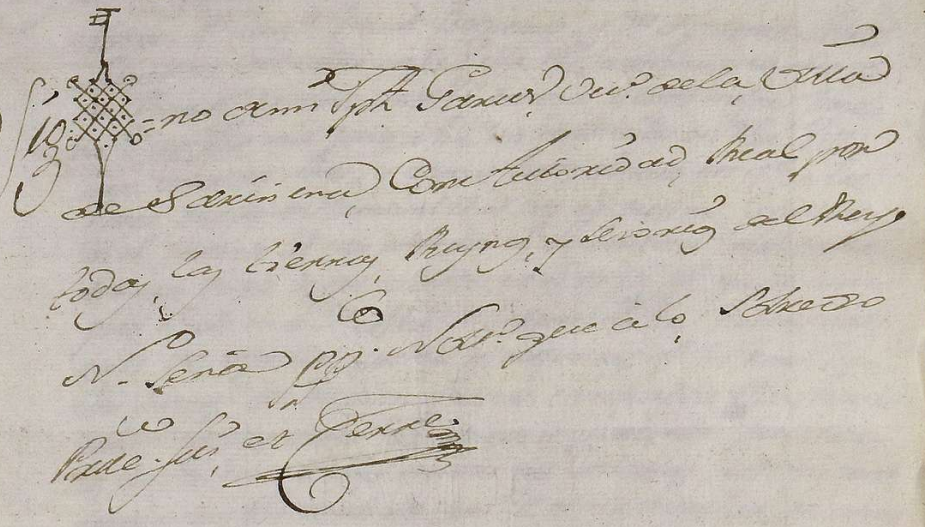 Sig=no de mi Jph Garces Vec.º de la Villa
de Sariñena, y con Autoridad Real por
todas las tierras, Reynos, y Señorios del Rey
N. Señor pp.co Not.º que a lo Sobredho
Prᵗᵉ fui, et Cerre